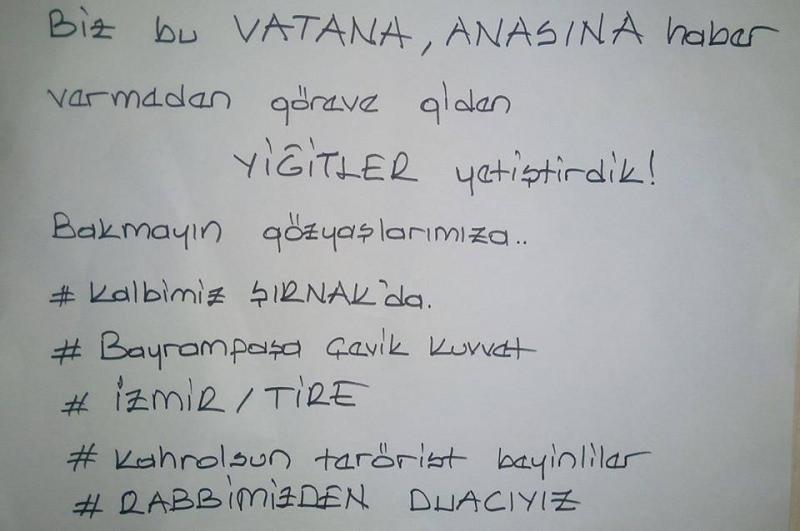 Biz bu VATANA, ANASINA haber
vermeden göreve giden
YİĞİTLER yetiştirdik!
Bakmayın gözyaşlarımıza..
# Kalbimiz ŞIRNAK'da.
# Bayrampaşa Çevik Kuvvet
# İZMİR / TİRE
# Kahrolsun terörist beyinliler
# RABBİMİZDEN DUACIYIZ